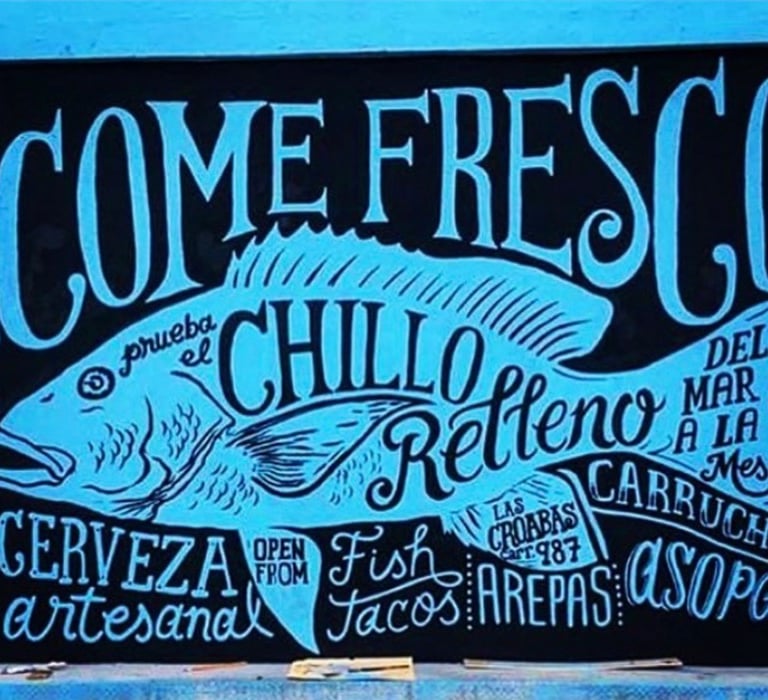 COME FRESCO
prueba
el
CHILLO
Relleno
DEL
MAR
A LA
Mes
CARRUCH
LAS
CROABAS
Carr. 987
CERVEZA
artesanal
OPEN
FROM
Fish
tacos
AREPAS
asopa